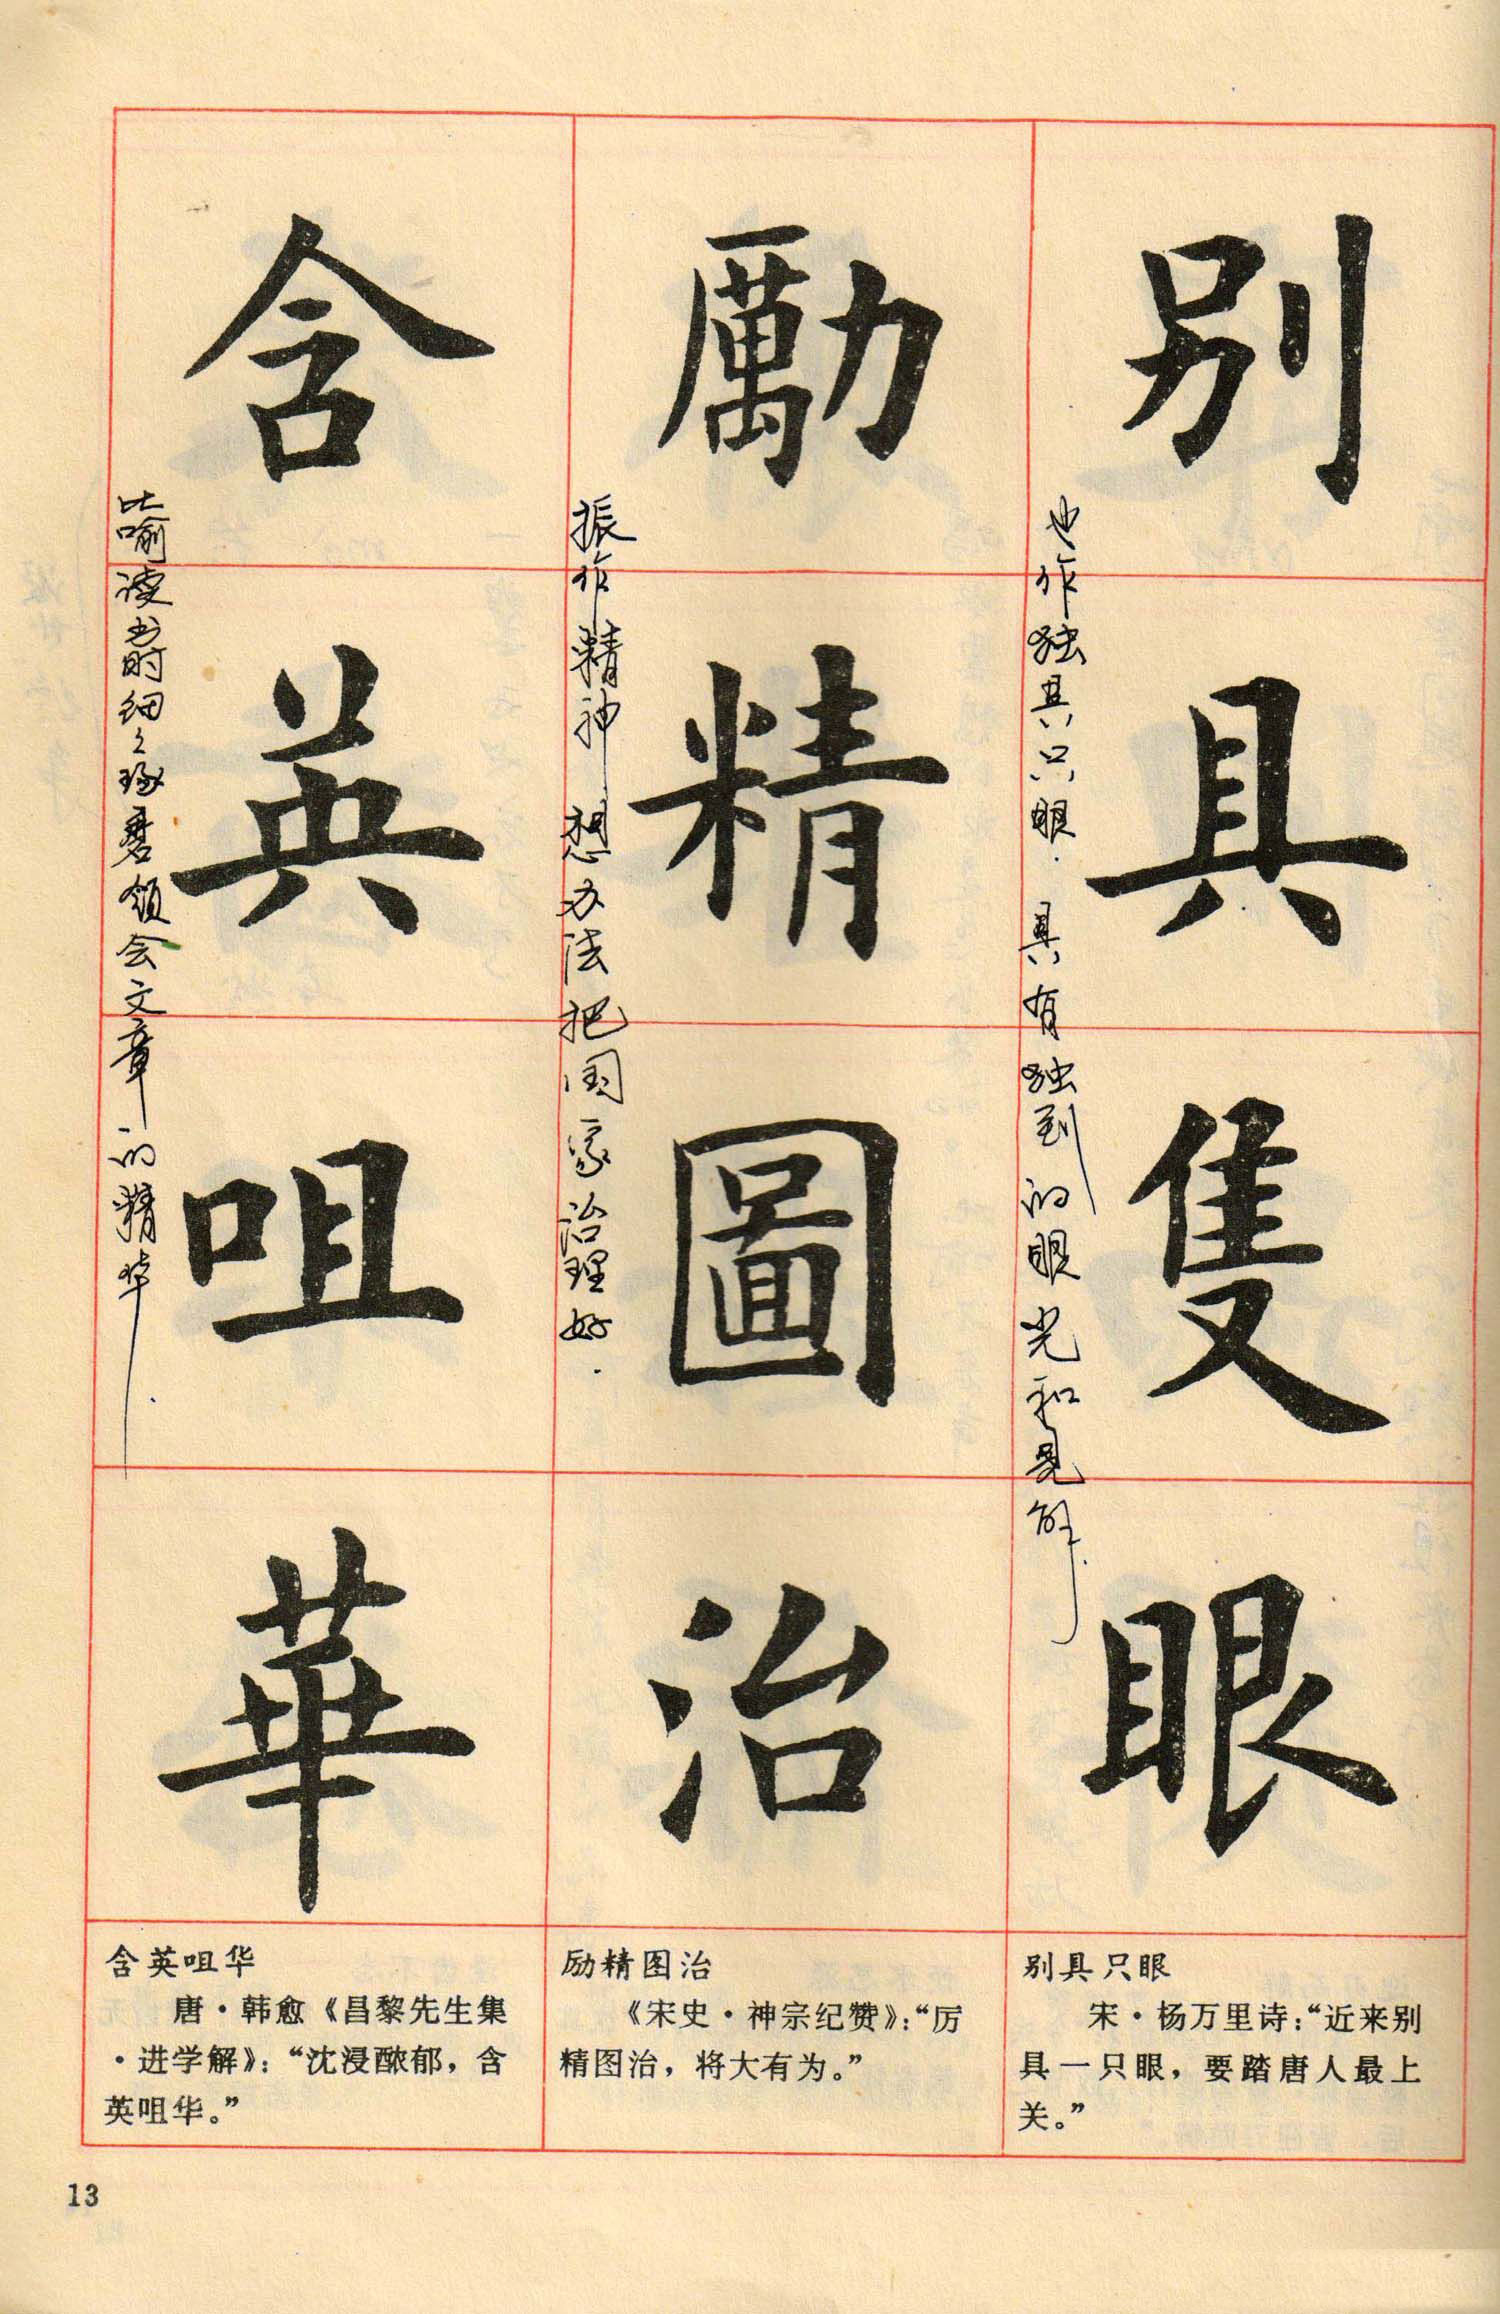 別具隻眼
也作独具只眼.具有独到的眼光和见解.
勵精圖治
振作精神 想办法把国家治理好.
含英咀華
比喻读书时细々琢磨领会文章的精华.
别具只眼
宋·杨万里诗：“近来别
具一只眼，要踏唐人最上
关。”
励精图治
《宋史·神宗纪赞》：“厉
精图治，将大有为。”
含英咀华
唐·韩愈《昌黎先生集
·进学解》：“沈浸醲郁，含
英咀华。”
13